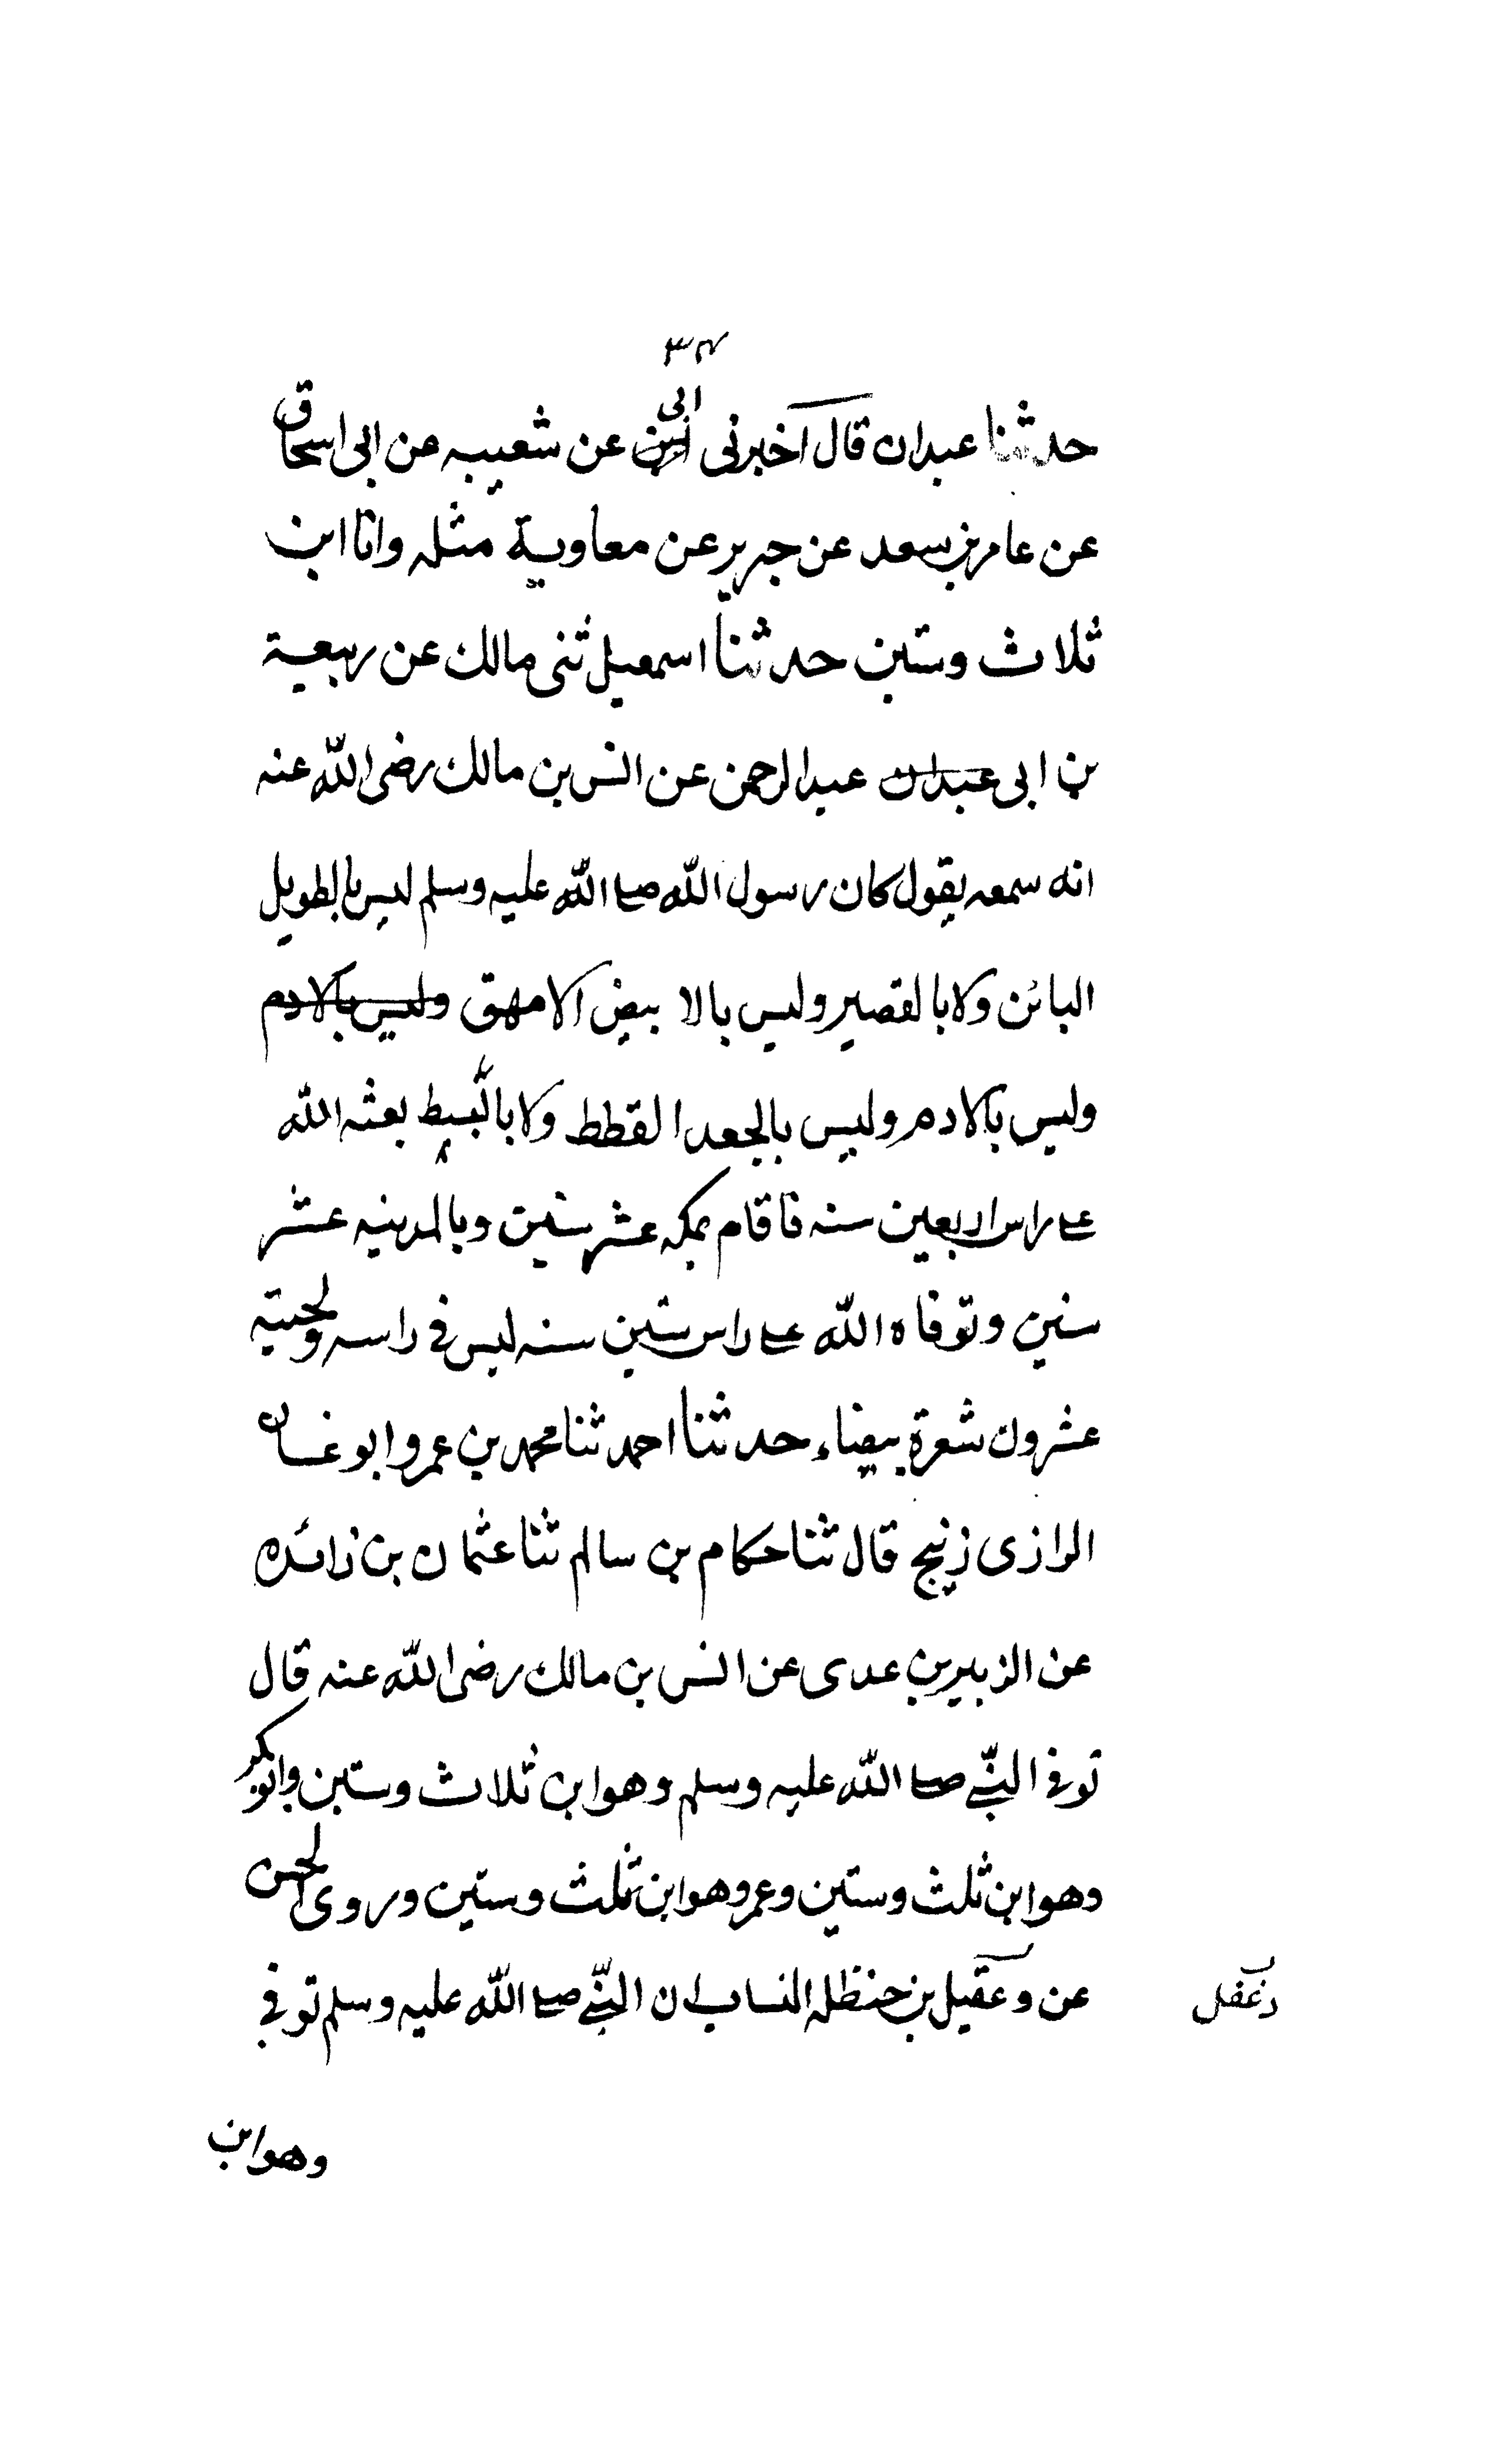 ٣٤
حدثنا عبدان قال اخبرني ابي عن شعيبه عن ابى اسحاق
عن عامر بن سعد عن جرير عن معاوية مثله وانا ابن
ثلاث وستين حدثنا اسمعيل ثنى مالك عن ربيعة
بن ابى عبدان عبدالرحمن عن انس بن مالك رضى الله عنه
انه سمعه يقول كان رسول الله صلى الله عليه وسلم ليس بالطويل
البائن ولا بالقصير وليس بالا بيض الامهق وليس بالادم
وليس بالادم وليس بالجعد القطط ولا بالسبط بعثه الله
على راس اربعين سنه فاقام بمكه عشر سنين وبالمدينه عشر
سنين وتوفاه الله على راس ستين سنه ليس فى راسه ولحيته
عشرون شعرة بيضاء حدثنا احمد ثنا محمد بن عمرو ابو غسان
الرازى زنيج قال ثنا حكام بن سالم ثنا عثمان بن زائده
عن الزبير بن عدى عن انس بن مالك رضى الله عنه قال
توفى النبي صلى الله عليه وسلم وهو ابن ثلاث وستين وابوبكر
وهو ابن ثلث وستين وعمر وهو ابن ثلث وستين وروى الحسن
عن وعقيل بن حنظله النساب ان النبي صلى الله عليه وسلم توفى
دغفل
وهو ابن